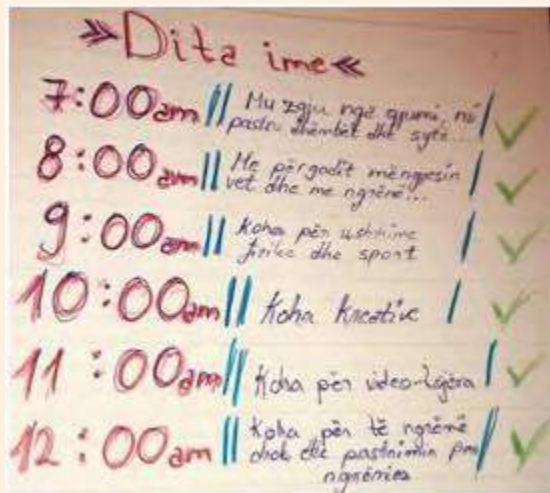 »Dita ime«
7:00am || Mu zgju nga gjumi, 
pastru dhëmbët dhe sytë...
8:00am || Me përgadit mëngjesin
vet dhe me ngrënë...
9:00am || Koha për ushtrime
fizike dhe sport
10:00am || Koha Kreative
11:00am || Koha për video-lojëra
12:00am || Koha për të ngrënë
drek dhe pastrimin
ngrënies